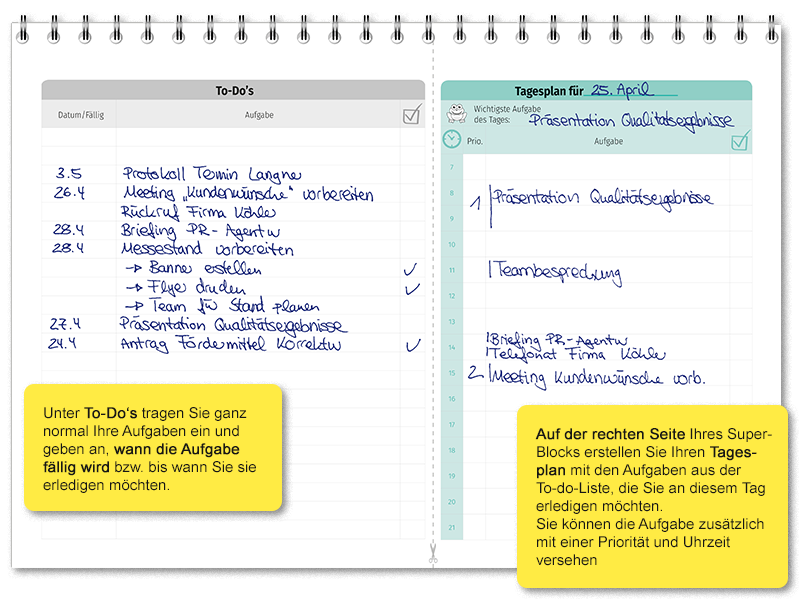 To-Do's
Datum/Fällig Aufgabe
3.5 Protokoll Termin Langner
26.4 Meeting „Kundenwünsche" vorbereiten
Rückruf Firma Köhler
28.4 Briefing PR-Agentur
28.4 Messestand vorbereiten
→ Banner erstellen
→ Flyer drucken
→ Team für Stand planen
27.4 Präsentation Qualitätsergebnisse
24.4 Antrag Fördermittel Korrektur
Unter To-Do‘s tragen Sie ganz
normal Ihre Aufgaben ein und
geben an, wann die Aufgabe
fällig wird bzw. bis wann Sie sie
erledigen möchten.
Tagesplan für 25. April
Wichtigste Aufgabe
des Tages: Präsentation Qualitätsergebnisse
Prio. Aufgabe
7
8
1 Präsentation Qualitätsergebnisse
9
10
11 Teambesprechung
12
13
Briefing PR-Agentur
14 Telefonat Firma Köhler
15 2 Meeting Kundenwünsche vorb.
16
17
18
19
20
21
Auf der rechten Seite Ihres Super-
Blocks erstellen Sie Ihren Tages-
plan mit den Aufgaben aus der
To-do-Liste, die Sie an diesem Tag
erledigen möchten.
Sie können die Aufgabe zusätzlich
mit einer Priorität und Uhrzeit
versehen